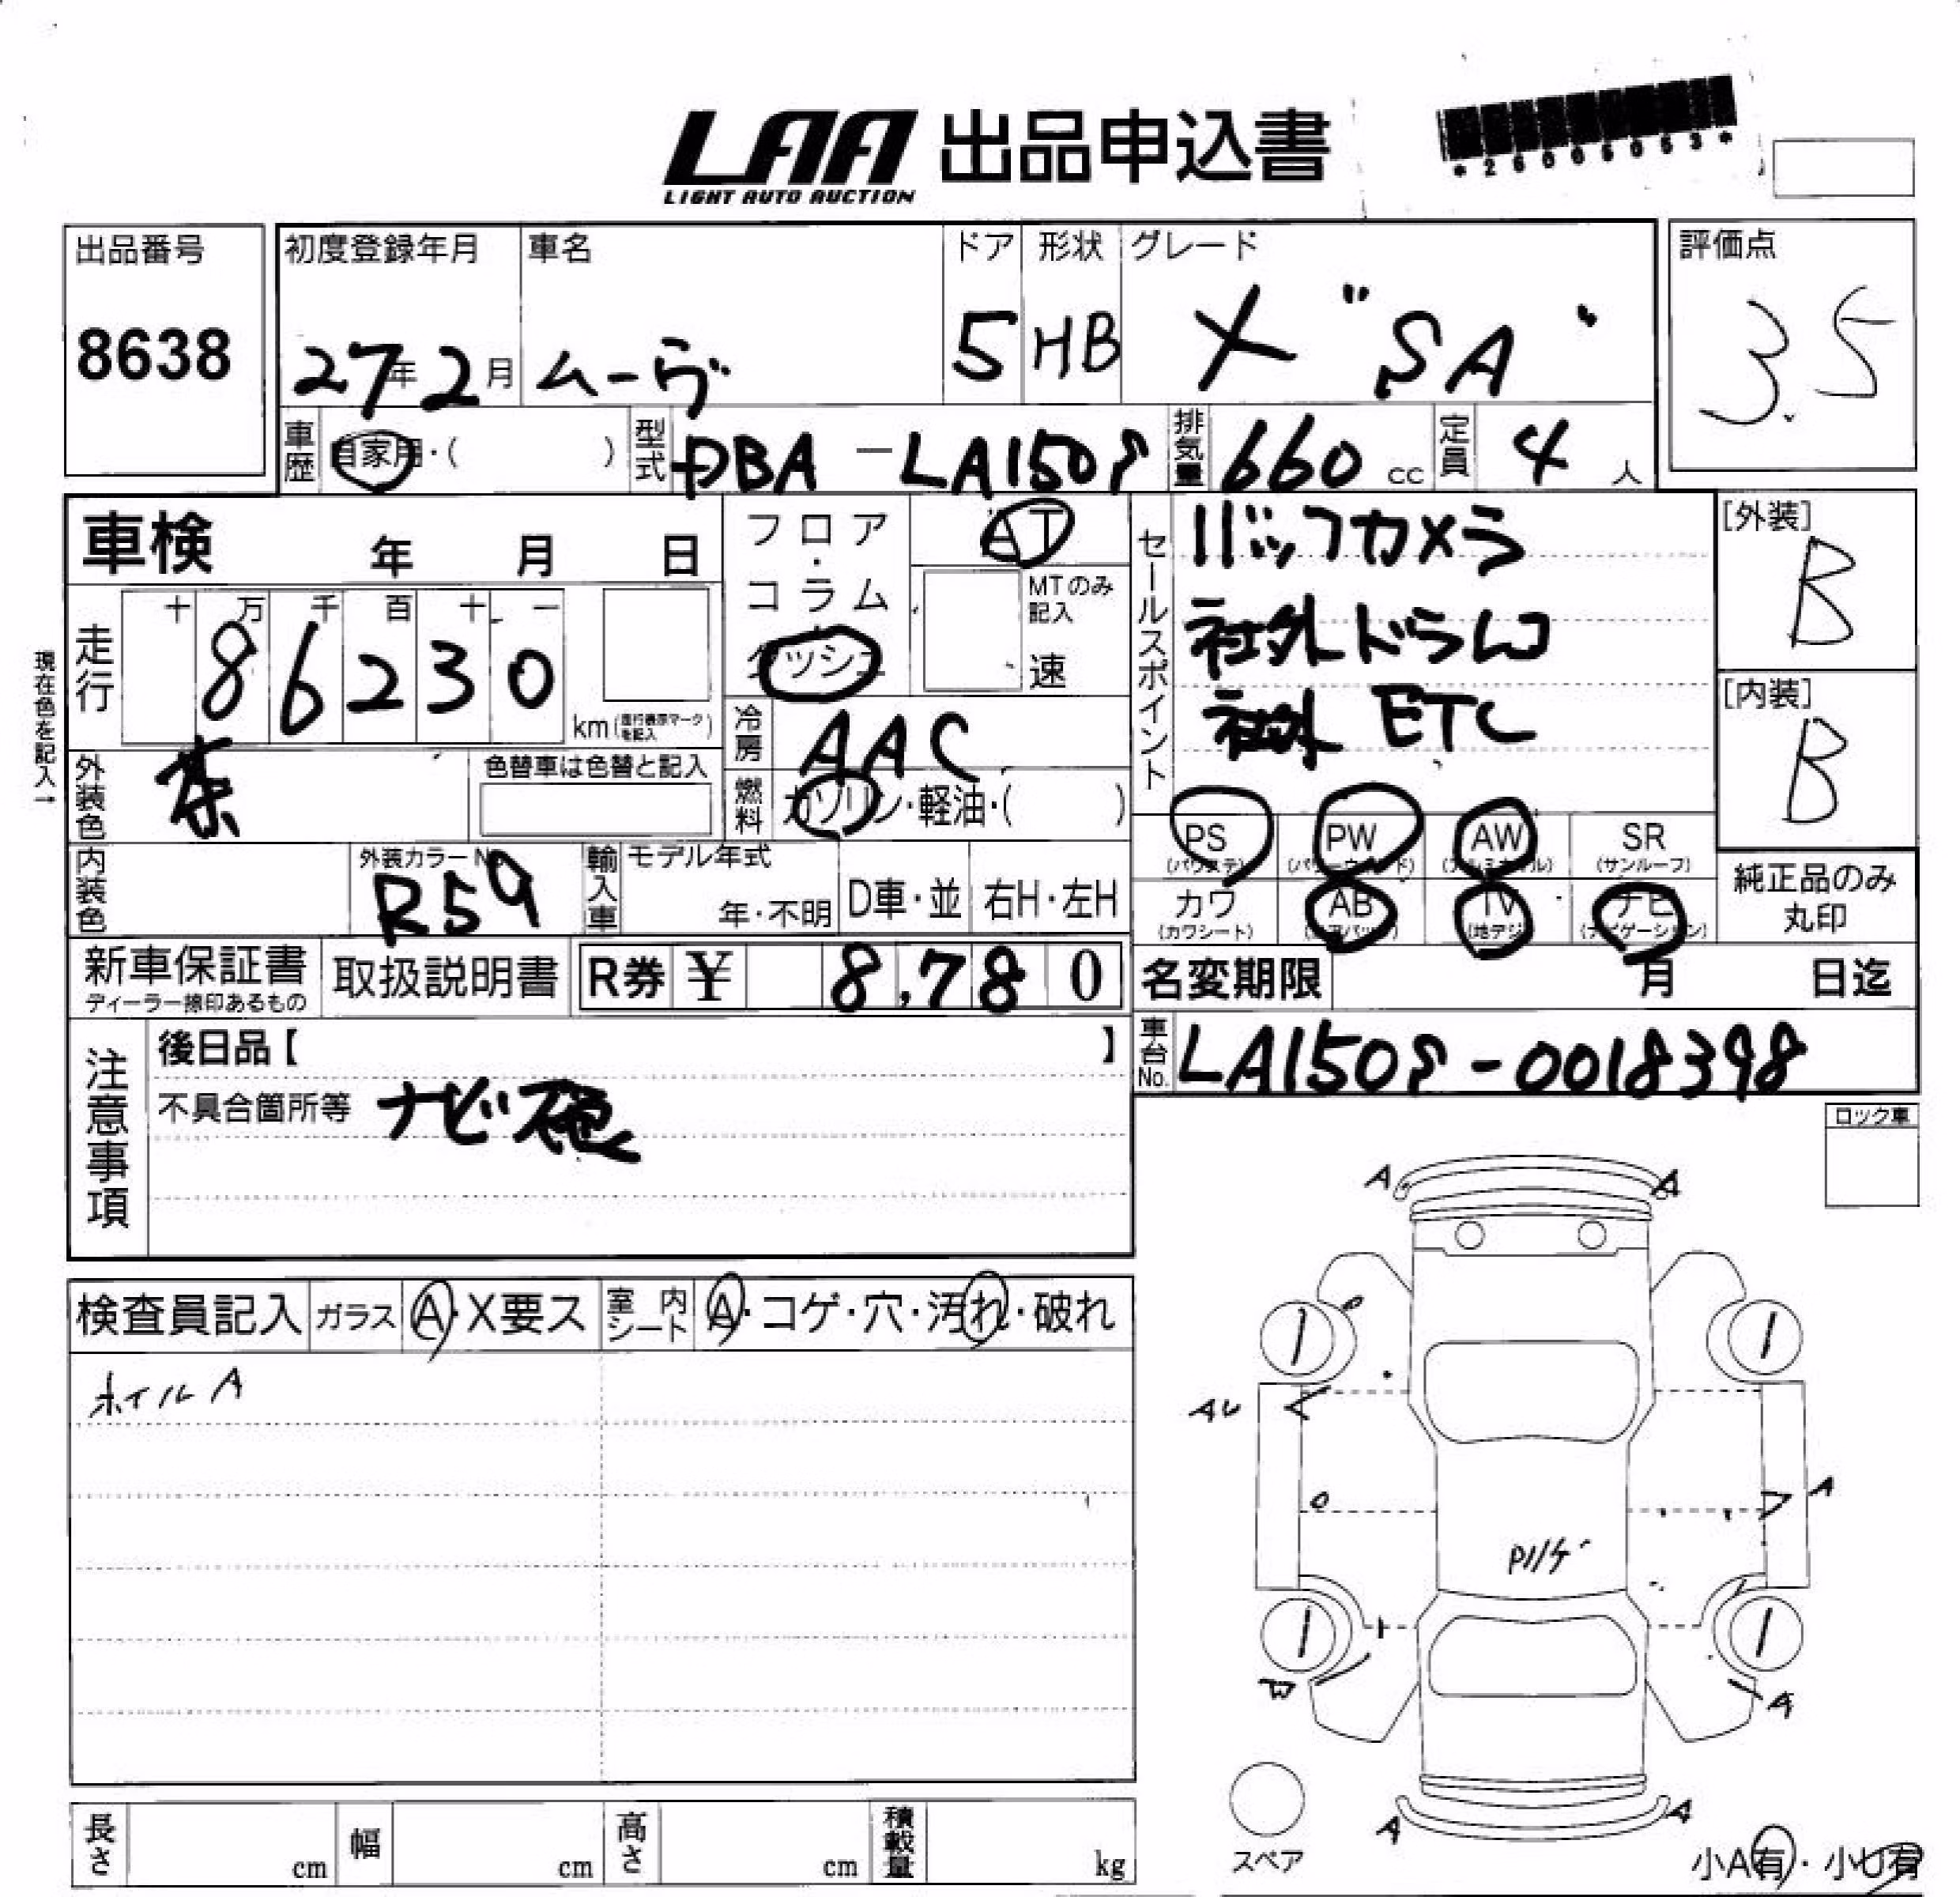 LAA 出品申込書
LIGHT AUTO AUCTION
*26005053*
出品番号
8638
初度登録年月
27年2月
車名
ムーヴ
ドア
5
形状
HB
グレード
X "SA"
評価点
3.5
車歴 自家用・( )
型式 DBA-LA150S
排気量 660 cc
定員 4 人
車検 年 月 日
フロア・コラム
ダッシュ
AT
MTのみ記入
速
セールスポイント
バックカメラ
社外ドラレコ
社外 ETC
[外装]
B
[内装]
B
現在色を記入→
走行 十 万 千 百 十 一
86230
km(走行機原マークを記入)
冷房 AAC
外装色 茶
色替車は色替と記入
燃料 ガソリン・軽油・( )
PS (パワステ) PW (パワーウインド) AW (アルミホイル) SR (サンルーフ)
カワ (カワシート) AB (エアバッグ) TV (地デジ) ナビ (ナビゲーション)
純正品のみ丸印
内装色
外装カラーNo.
R59
輸入車 モデル年式
年・不明 D車・並 右H・左H
新車保証書
ディーラー捺印あるもの
取扱説明書
R券 ¥ 8,780
名変期限 月 日迄
車台No. LA150S-0018398
注意事項
後日品【 】
不具合箇所等 ナビ
ロック車
検査員記入 ガラス A・X要ス 室内シート A・コゲ・穴・汚れ・破れ
ホイルA
A A
AU
A
Pハゲ
W A
A A
スペア
長さ cm 幅 cm 高さ cm 積載量 kg
小A有・小U有